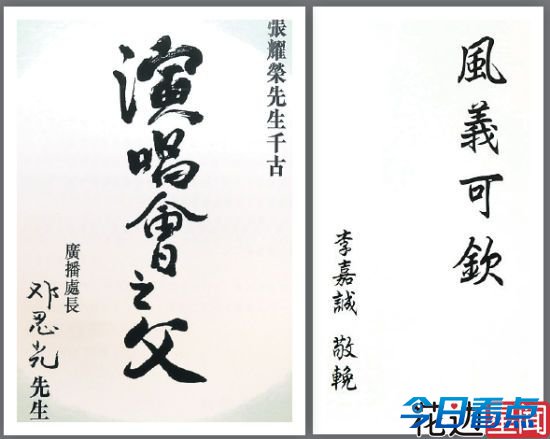 張耀榮先生千古
演唱會之父
廣播處長
邓忍光先生
風義可欽
李嘉誠 敬輓
今日看点